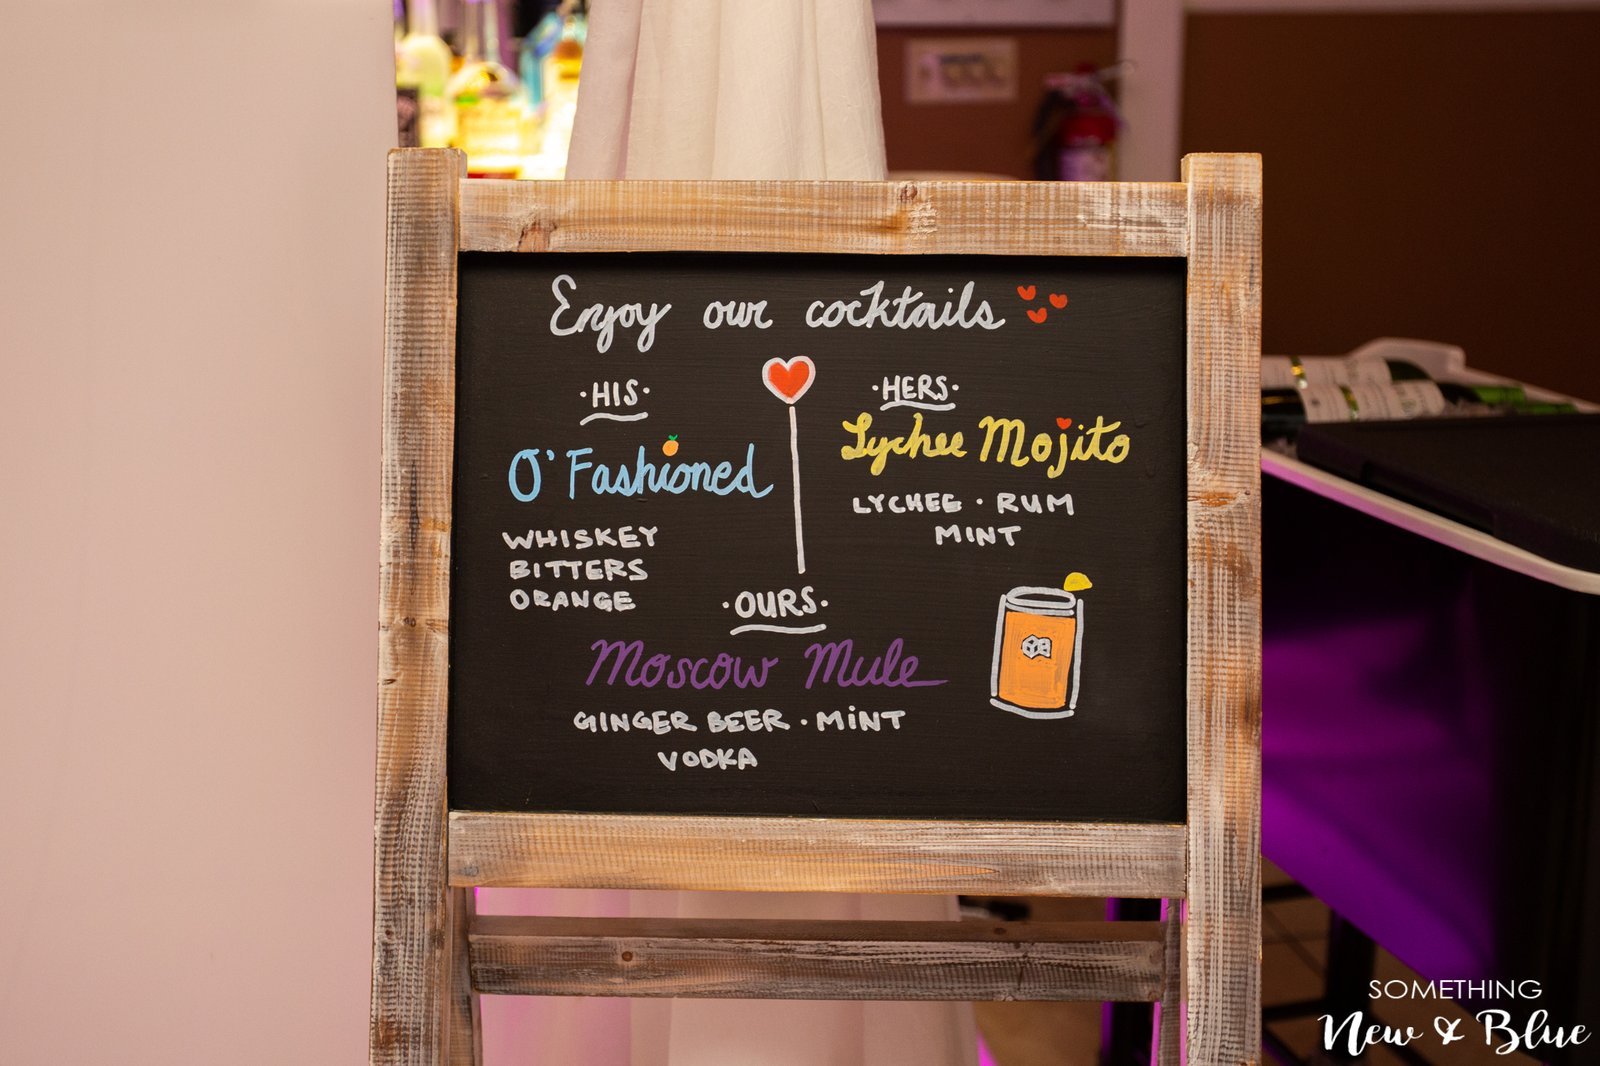 Enjoy our cocktails
·HIS·
O' Fashioned
WHISKEY
BITTERS
ORANGE
·HERS·
Lychee Mojito
LYCHEE · RUM
MINT
·OURS·
Moscow Mule
GINGER BEER · MiNT
VODKA
SOMETHING
New & Blue